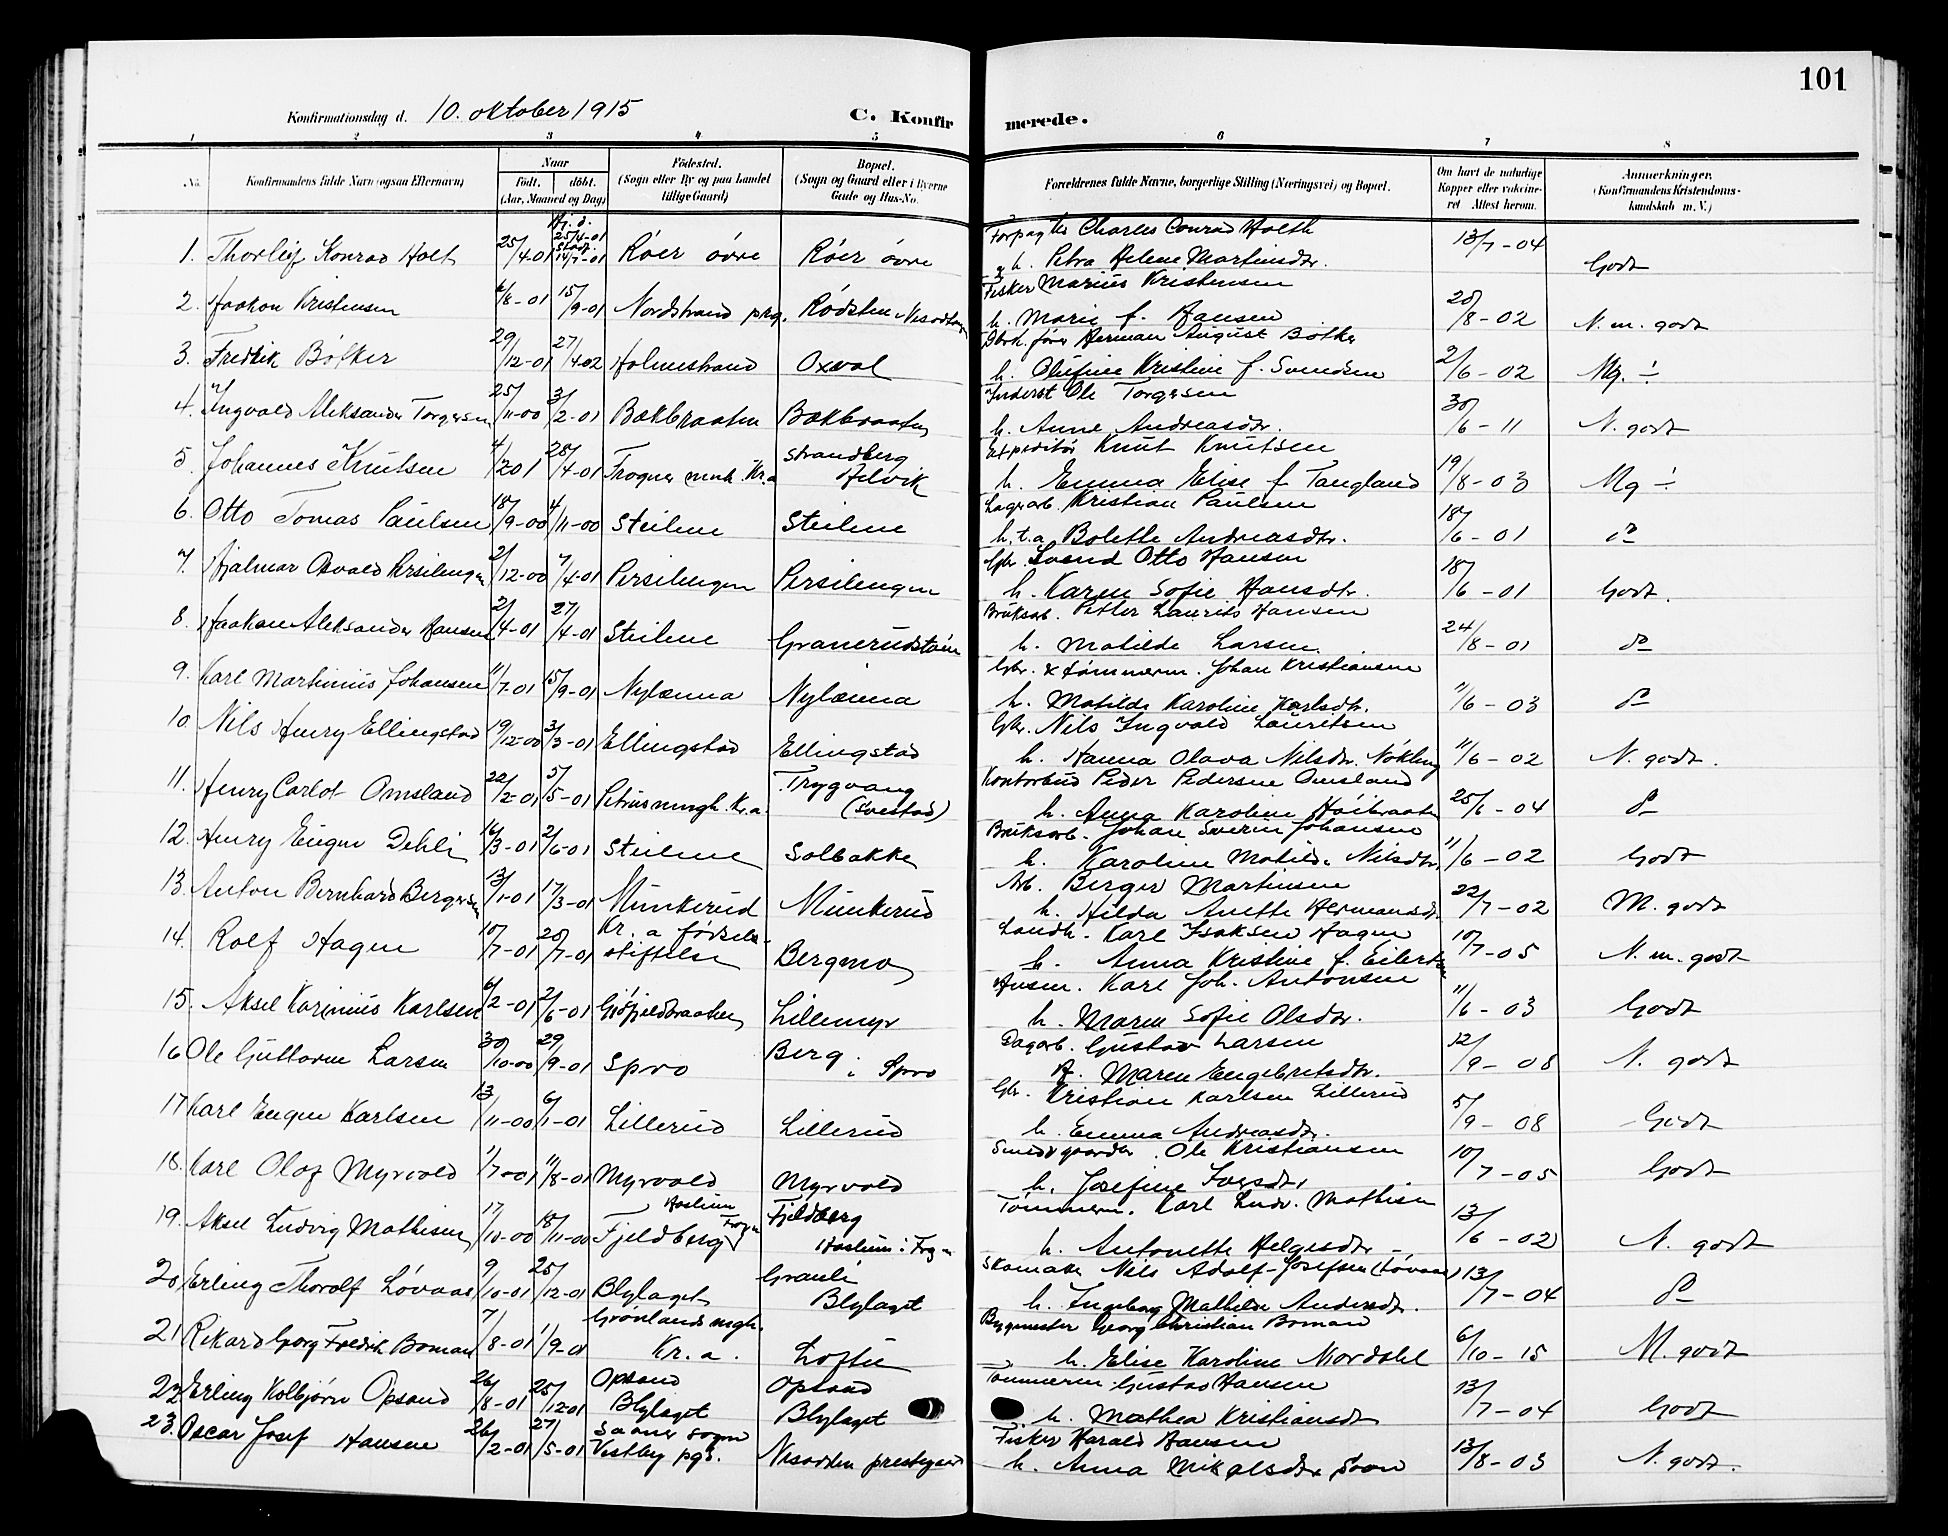 101
Konfirmationsdag d. 10. oktober 1915
C. Konfirmerede.
1 2 3 4 5 6 7 8
No.
Konfirmandens fulde Navn (ogsaa Efternavn)
Naar
født. døbt.
(Aar, Maaned og Dag)
Födested.
(Sogn eller By og paa Landet tillige Gaard)
Bopæl.
(Sogn og Gaard eller i Byerne Gade og Hus-No.
Forældrenes fulde Navne, borgerlige Stilling (Næringsvei) og Bopæl.
Om havt de naturlige Kopper eller vaccineret Attest herom.
Anmerkninger.
(Konfirmandens Kristendomskundskab m. V.)
Hj. d. 25/4-01 Stadf.
Forpagter Charles Conrad Holth
1. Thorleif Konrad Holt 25/4 01 14/7-01 Röer övre Röer övre h. Petra Helene Martinsdtr. 13/7-04 Godt
Fisker Marius Kristensen
2. Haakon Kristensen 6/8-01 15/9-01 Nordstrand prg. Rödsten Nesodden h. Marie f. Hansen 20/8-02 N. m. godt
Herman August Bötker
3. Fredrik Bötker 29/12-01 27/4 02 Holmestrand Oxval h. Olufine Kristine f. Svendsen 2/6-02 Mg. -:-
Inderst Ole Torgersen
4. Ingvald Aleksander Torgersen 25/11-00 3/2-01 Bakbraaten Bakbraaten h. Anne Andreasdtr. 30/6-11 N. godt
Expeditör Knut Knutsen
5. Johannes Knutsen 4/1 201 28/4-01 Frogner mnh. Kr.a Strandberg Helvik h. Emma Elise f. Tangland 19/8-03 Mg -:-
Lagerarb. Kristian Paulsen
6. Otto Tomas Paulsen 18/9-00 4/11-00 Steilene Steilene h. t.a. Bolette Andreasdtr. 18/6-01 do
Gbr. Svend Otto Hansen
7. Hjalmar Osvald Persilengen 2/12-00 7/4-01 Persilengen Persilengen h. Karen Sofie Hansdtr. 18/6-01 Godt.
Bruksarb. Petter Laurits Hansen
8. Haakon Aleksander Hansen 2/4-01 27/4-01 Steilene Granerudstöen h. Matilde Larsen 24/8-01 do
Gbr. & tömmerm. Johan Kristiansen
9. Karl Martinius Johansen 11/7-01 15/9-01 Nylænna Nylænna h. Matilde Karoline Karlsdtr. 11/6-03 do
Gbr. Nils Ingvald Lauritsen
10 Nils Henry Ellingstad 19/12-00 3/3-01 Ellingstad Ellingstad h. Hanna Olava Nilsdtr. Nökling 11/6-02 N. godt.
Kontorbud Peder Pedersen Omsland
11. Henry Carlot Omsland 22/2-01 5/5-01 Petrus mngh. Kr.a. Trygvang (Svestad) h. Anna Karoline Höibraaten 25/6-04 do
Bruksarb. Johan Severin Johansen
12. Henry Eugen Dehli 16/3-01 2/6-01 Steilene Solbakken h. Karoline Matild. Nilsdtr. 11/6-02 Godt
Arb. Berger Martinsen
13. Anton Bernhard Bergersen 13/1-01 17/3-01 Munkerud Munkerud h. Hilda Anette Hermansdtr. 22/7-02 M. godt
Landh. Karl Isaksen Hagen
14. Rolf Hagen 10/7-01 20/7-01 Kr. a födselsstiftelse Bergmo h. Anna Kristine f. Eilertsen 10/7-05 N. m. godt
Husm. Karl Joh. Antonsen
15. Aksel Karinius Karlsen 6/2-01 2/6-01 Gjöfjeldbraaten Lillemyr h. Maren Sofie Olsdtr. 11/6-03 Godt
Dagarb. Gustav Larsen
16 Ole Guttorm Larsen 30/10-00 29/9-01 Spro Berg i Spro h. Maren Engebretsdtr. 12/9-08 N. godt
Gbr. Kristian Karlsen Lillerud
17 Karl Eugen Karlsen 13/11-00 6/1-01 Lillerud Lillerud h. Emma Andreasdtr. 5/9-08 Godt
Ole Kristiansen
18. Karl Olaf Myrvold 1/7-01 11/8-01 Myrvold Myrvold h. Josefine Iversdtr. 10/7-05 Godt
Tömmerm. Karl Ludv. Mathisen
19. Aksel Ludvig Mathisen 17/10-00 18/11-00 Fjeldberg Haslum Frogn Fjeldberg Haslum i Frogn h. Antonette Helgesdtr 13/6-02 N. godt
Skomaker Nils Adolf Josefsen (Lövaas)
20 Erling Thorolf Lövaas 9/10-01 25/12-01 Blylaget Granli Blylaget h. Ingeborg Mathilde Andersdtr. 13/7-04 do
Bygmester Georg Christian Boman
21 Rikard Georg Fredrik Boman 7/8-01 1/9-01 Grönlands mgh. Kr. a. Loftu h. Elise Karoline Mordahl 6/10-15 M. godt
Tömmerm. Gustav Hansen
22 Erling Kolbjörn Opsand 26/8-01 25/12 01 Opsand Blylaget Opsand Blylaget h. Mathea Kristiansdtr 13/7-04 Godt
Fisker Harald Hansen
23. Oscar Josef Hansen 26/2-01 27/5-01 Saaner sogn Vestby pgd. Nesodden prestegaard h. Anna Mikalsdtr Soon 13/8-03 N. godt.